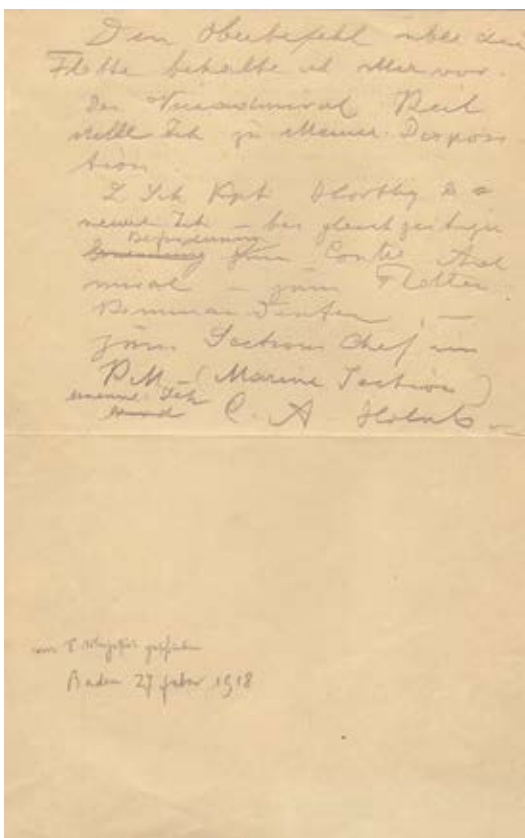 Den Oberbefehl über die
Flotte behalte ich Mir vor.
Den Viceadmiral Keil
stelle Ich zu Meiner Disposi
tion
L Sch Kpt Horthy
nenne Ich – bei gleichzeitiger
Beförderung
zum Contre Ad
miral – zum Flotten
Kommandanten, –
zum Sections Chef im
K.M. – (Marine Section)
ernenne Ich
C. A. Holub –
von S. Majestät geschrieben
Baden 27 feber 1918